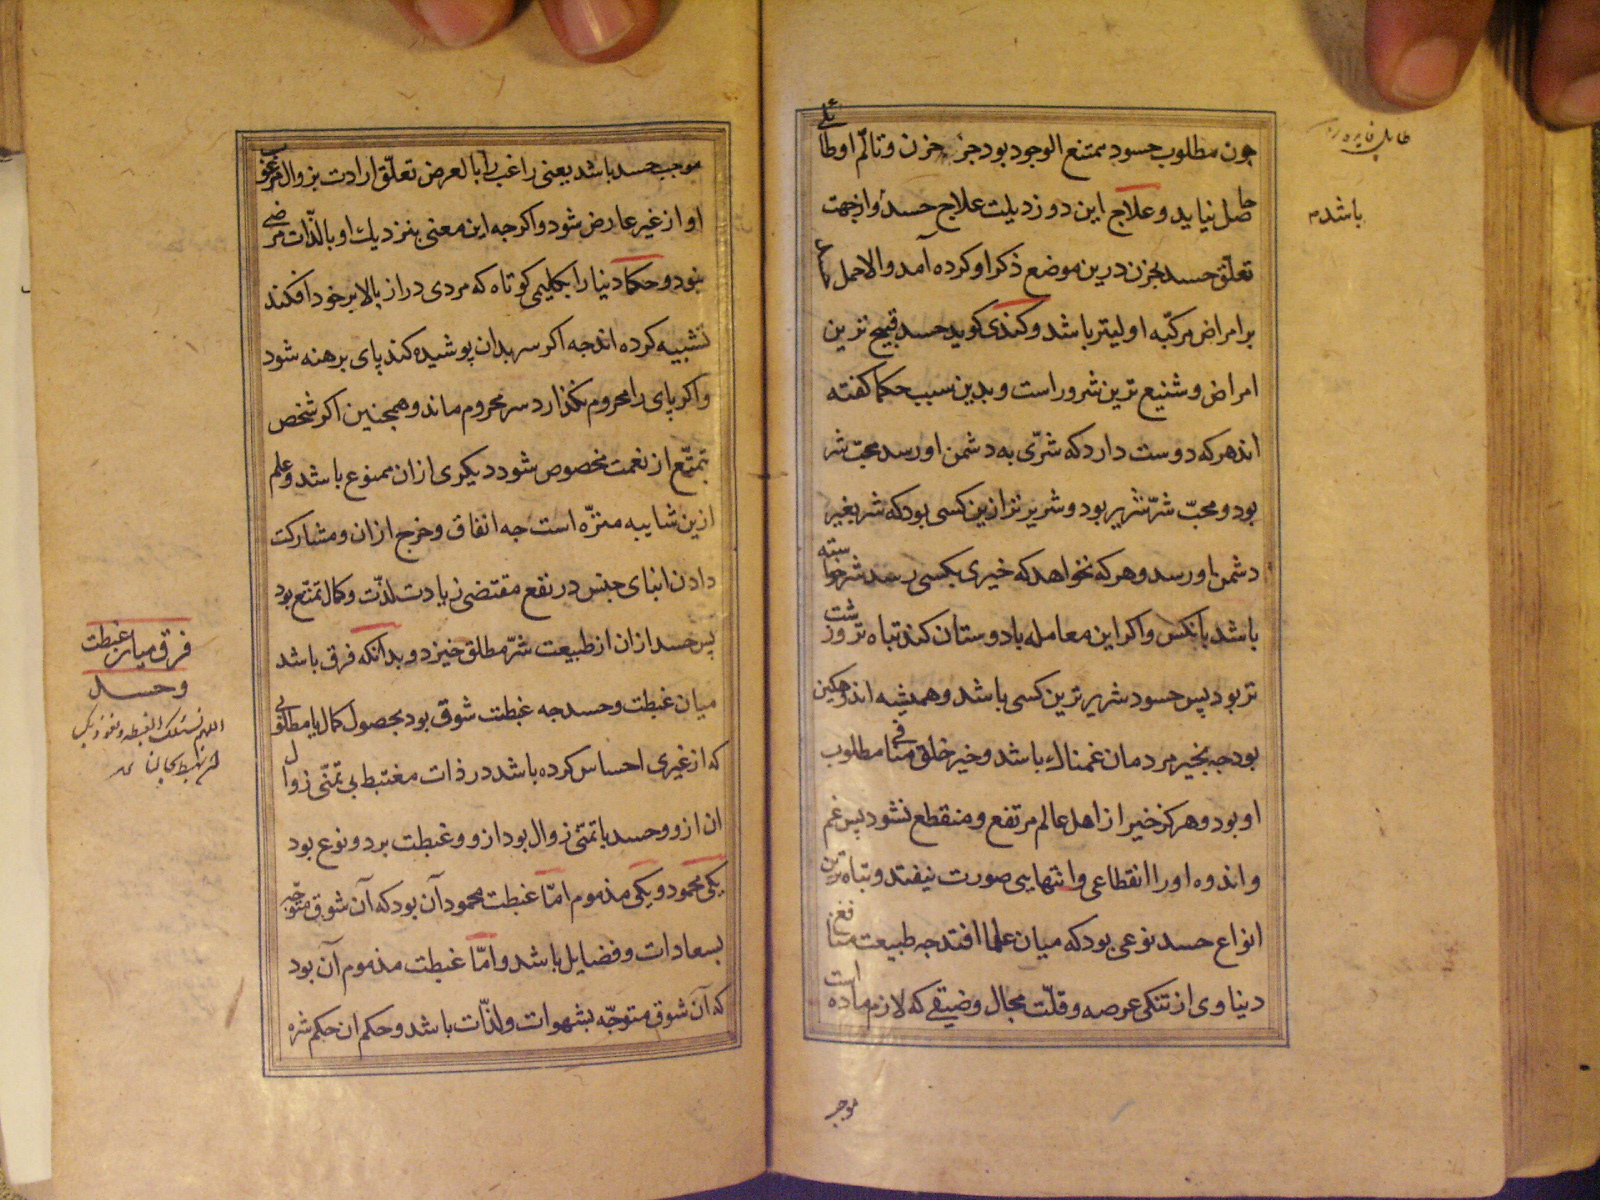 چون مطلوب حسود ممتنع الوجود بود جز حزن و تألّم او طائلی
حاصل نیاید و علاج این دو رذیلت علاج حسد و از جهت
تعلّق حسد بحزن درین موضع ذکر او کرده آمد والا حمل
بر امراض مرکّبه اولیتر باشد و کندی کوید حسد قبیح ترین
امراض و شنیع ترین شرور است و بدین سبب حکما کفته
اند هر که دوست دارد که شرّی به دشمن او رسد محبّ شر
بود و محبّ شرّ شریر بود و شریرتر ازین کسی بود که شر بغیر
دشمن او رسد و هر که نخواهد که خیری بکسی رسد شر خواسته
باشد بانکس و اکر این معامله با دوستان کند تباه تر و زشت
تر بود پس حسود شریر ترین کسی باشد و همیشه اندوهکین
بود چه بخیر مردمان غمناک باشد و خیر خلق منافی مطلوب
او بود و هرکز خیر از اهل عالم مرتفع و منقطع نشود پس غم
و اندوه او را انقطاعی و انتهایی صورت نیفتد و تباه ترین
انواع حسد نوعی بود که میان علما افتد چه طبیعت منافع
دنیاوی از تنکی عرصه و قلّت مجال و ضیقی که لازم ماده است
موجب
طایل فایده
باشد م
موجب حسد باشد یعنی راغب را بالعرض تعلّق ارادت بزوال مرغوب
او از غیر عارض شود و اکر چه این معنی بنزدیک او بالذّات مرضی
نبود و حکما دنیا را بکلیمی کوتاه که مردی دراز بالا بر خود افکند
تشبیه کرده اند چه اکر سر بدان پوشیده کند پای برهنه شود
و اکر پای را محروم نکذارد سر محروم ماند و همچنین اکر شخص
بتمتّع از نعمت مخصوص شود دیکری از ان ممنوع باشد و علم
ازین شایبه منزّه است چه انفاق و خرج از ان و مشارکت
دادن ابنای جنس در نفع مقتضی زیادت لذّت و کمال تمتع بود
پس حسد از ان از طبیعت شرّ مطلق خیزد و بدانکه فرق باشد
میان غبطت و حسد چه غبطت شوق بود بحصول کمال یا مطلوبی
که از غیری احساس کرده باشد در ذات مغتبط بی تمنّی زوال
ان ازو و حسد با تمنّی زوال بود ازو و غبطت بر دو نوع بود
یکی محمود و یکی مذموم امّا غبطت محمود آن بود که آن شوق متوجّه
بسعادات و فضایل باشد و امّا غبطت مذموم آن بود
که آن شوق متوجّه بشهوات و لذّات باشد و حکم ان حکم شره
فرق میان غبطت
و حسد
اللهم نسئلک الغبطه و نعوذ بک